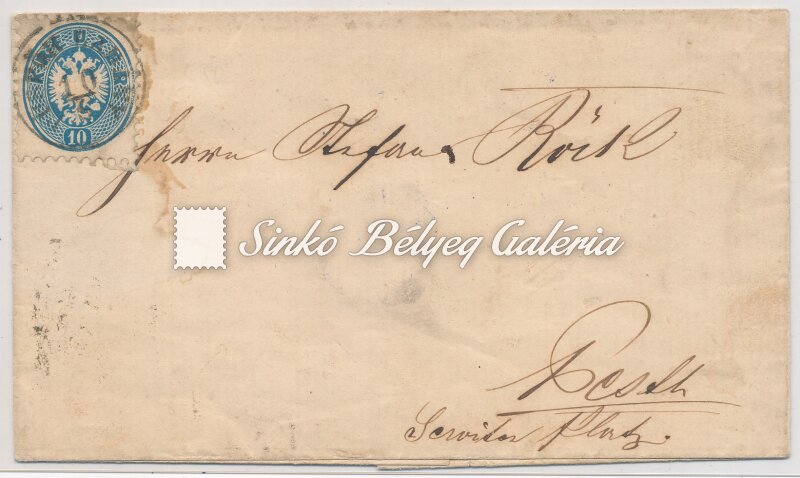 KREUZER
10
Herrn Stefan Röck
Sinkó Bélyeg Galéria
Pesth
Serviten Platz.